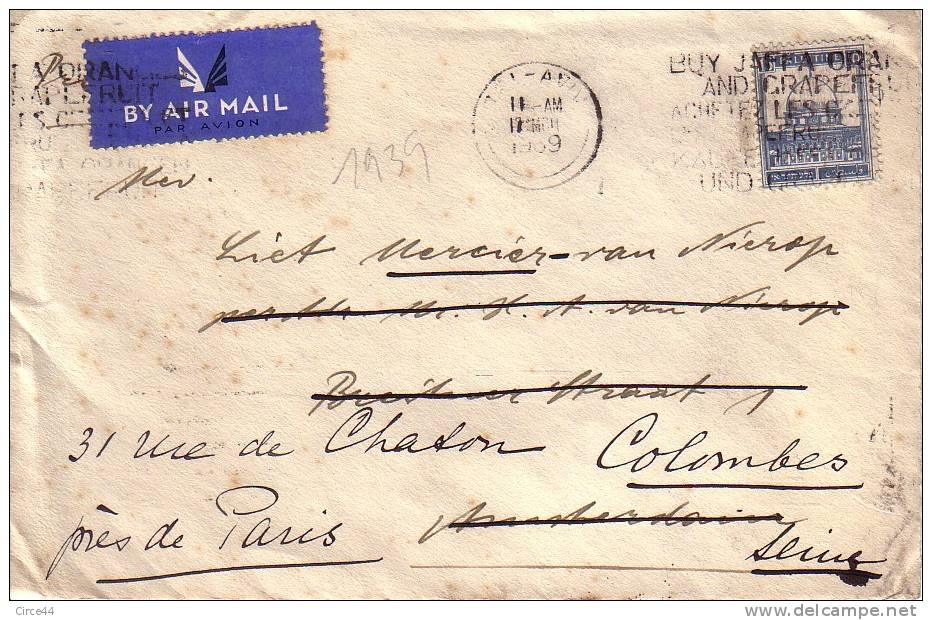 BY AIR MAIL
PAR AVION
TEL-AVIV
11 - AM
1939
BUY JAFFA ORAN
AND GRAPEFRU
ACHETEZ LES
UND
1939
Mev.
Liet Mercier-van Nierop
M. H. A. van Nierop
Straat 1
31 rue de Chaton Colombes
Amsterdam
près de Paris Seine
Circe44
www.delcampe.net